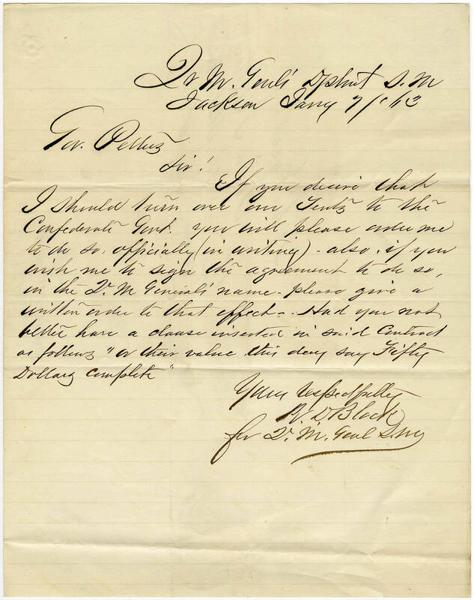 Qr M. Genls Dptmt S. M
Jackson Jany 7/'63
Gov. Pettus
Sir!
If you desire that
I should turn over our Tents to the
Confederate Govt. you will please order me
to do so, officially (in writing) - also, if you
wish me to sign the agreement to do so,
in the Qr. M Generals name - please give a
written order to that effect - Had you not
better have a clause inserted in said Contract
as follows "or their value this day say Fifty
Dollars complete"
Your respectfully
D Block
for Qr. M. Genl